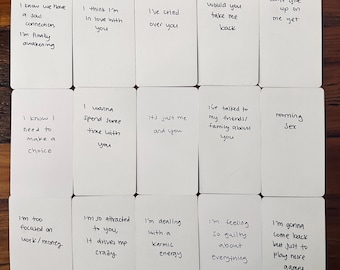 I know we have
a soul
connection
I'm finally
awakening
I think I'm
in love with
you
I've cried
over you
would you
take me
back
give
up on
me yet
I know I
need to
make a
choice
I wanna
spend some
time with
you
It's just me
and you
I've talked to
my friends/
family about
you
morning
sex
I'm too
focused on
work/money
I'm so attracted
to you,
it drives me
crazy
I'm dealing
with a
karmic
energy
I'm feeling
so guilty
about
everything
I'm gonna
come back
but just to
play more
games